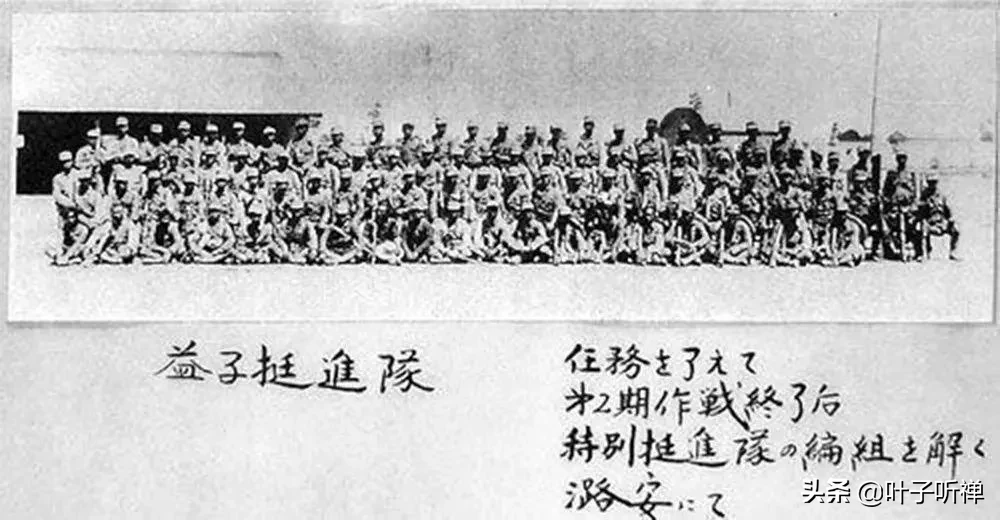 益子挺進隊
任務を了えて
第2期作戦終了后
特別挺進隊の編組を解く
潞安にて
头条 @叶子听禅